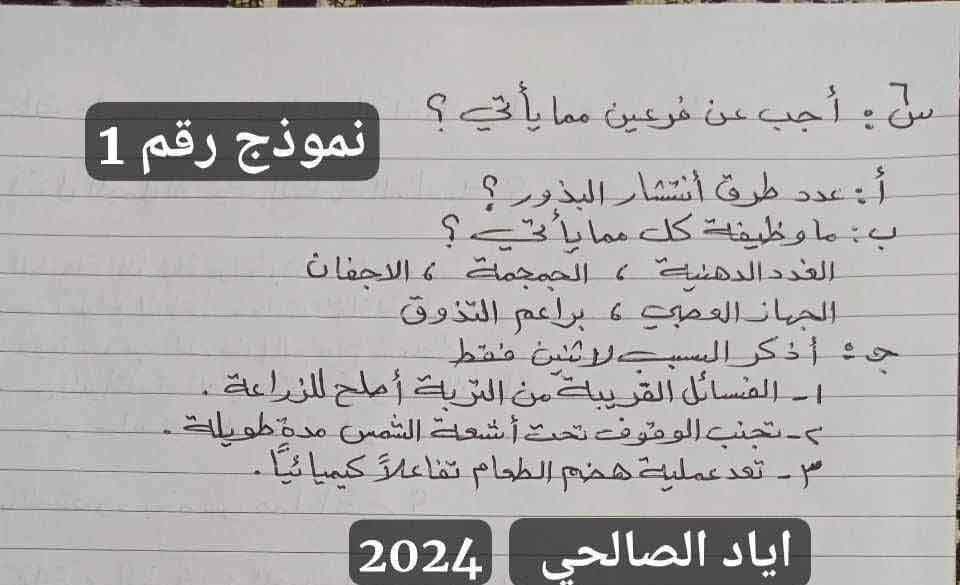 س٦: أجب عن فرعين مما يأتي ؟
نموذج رقم 1
أ: عدد طرق أنتشار البذور ؟
ب: ما وظيفة كل مما يأتي ؟
الغدد الدهنية ، الجمجمة ، الاجفان
الجهاز العصبي ، براعم التذوق
جـ: أذكر السبب لاثنين فقط
١- الفسائل القريبة من التربة أصلح للزراعة .
٢- تجنب الوقوف تحت أشعة الشمس مدة طويلة .
٣- تعد عملية هضم الطعام تفاعلاً كيميائياً .
اياد الصالحي 2024